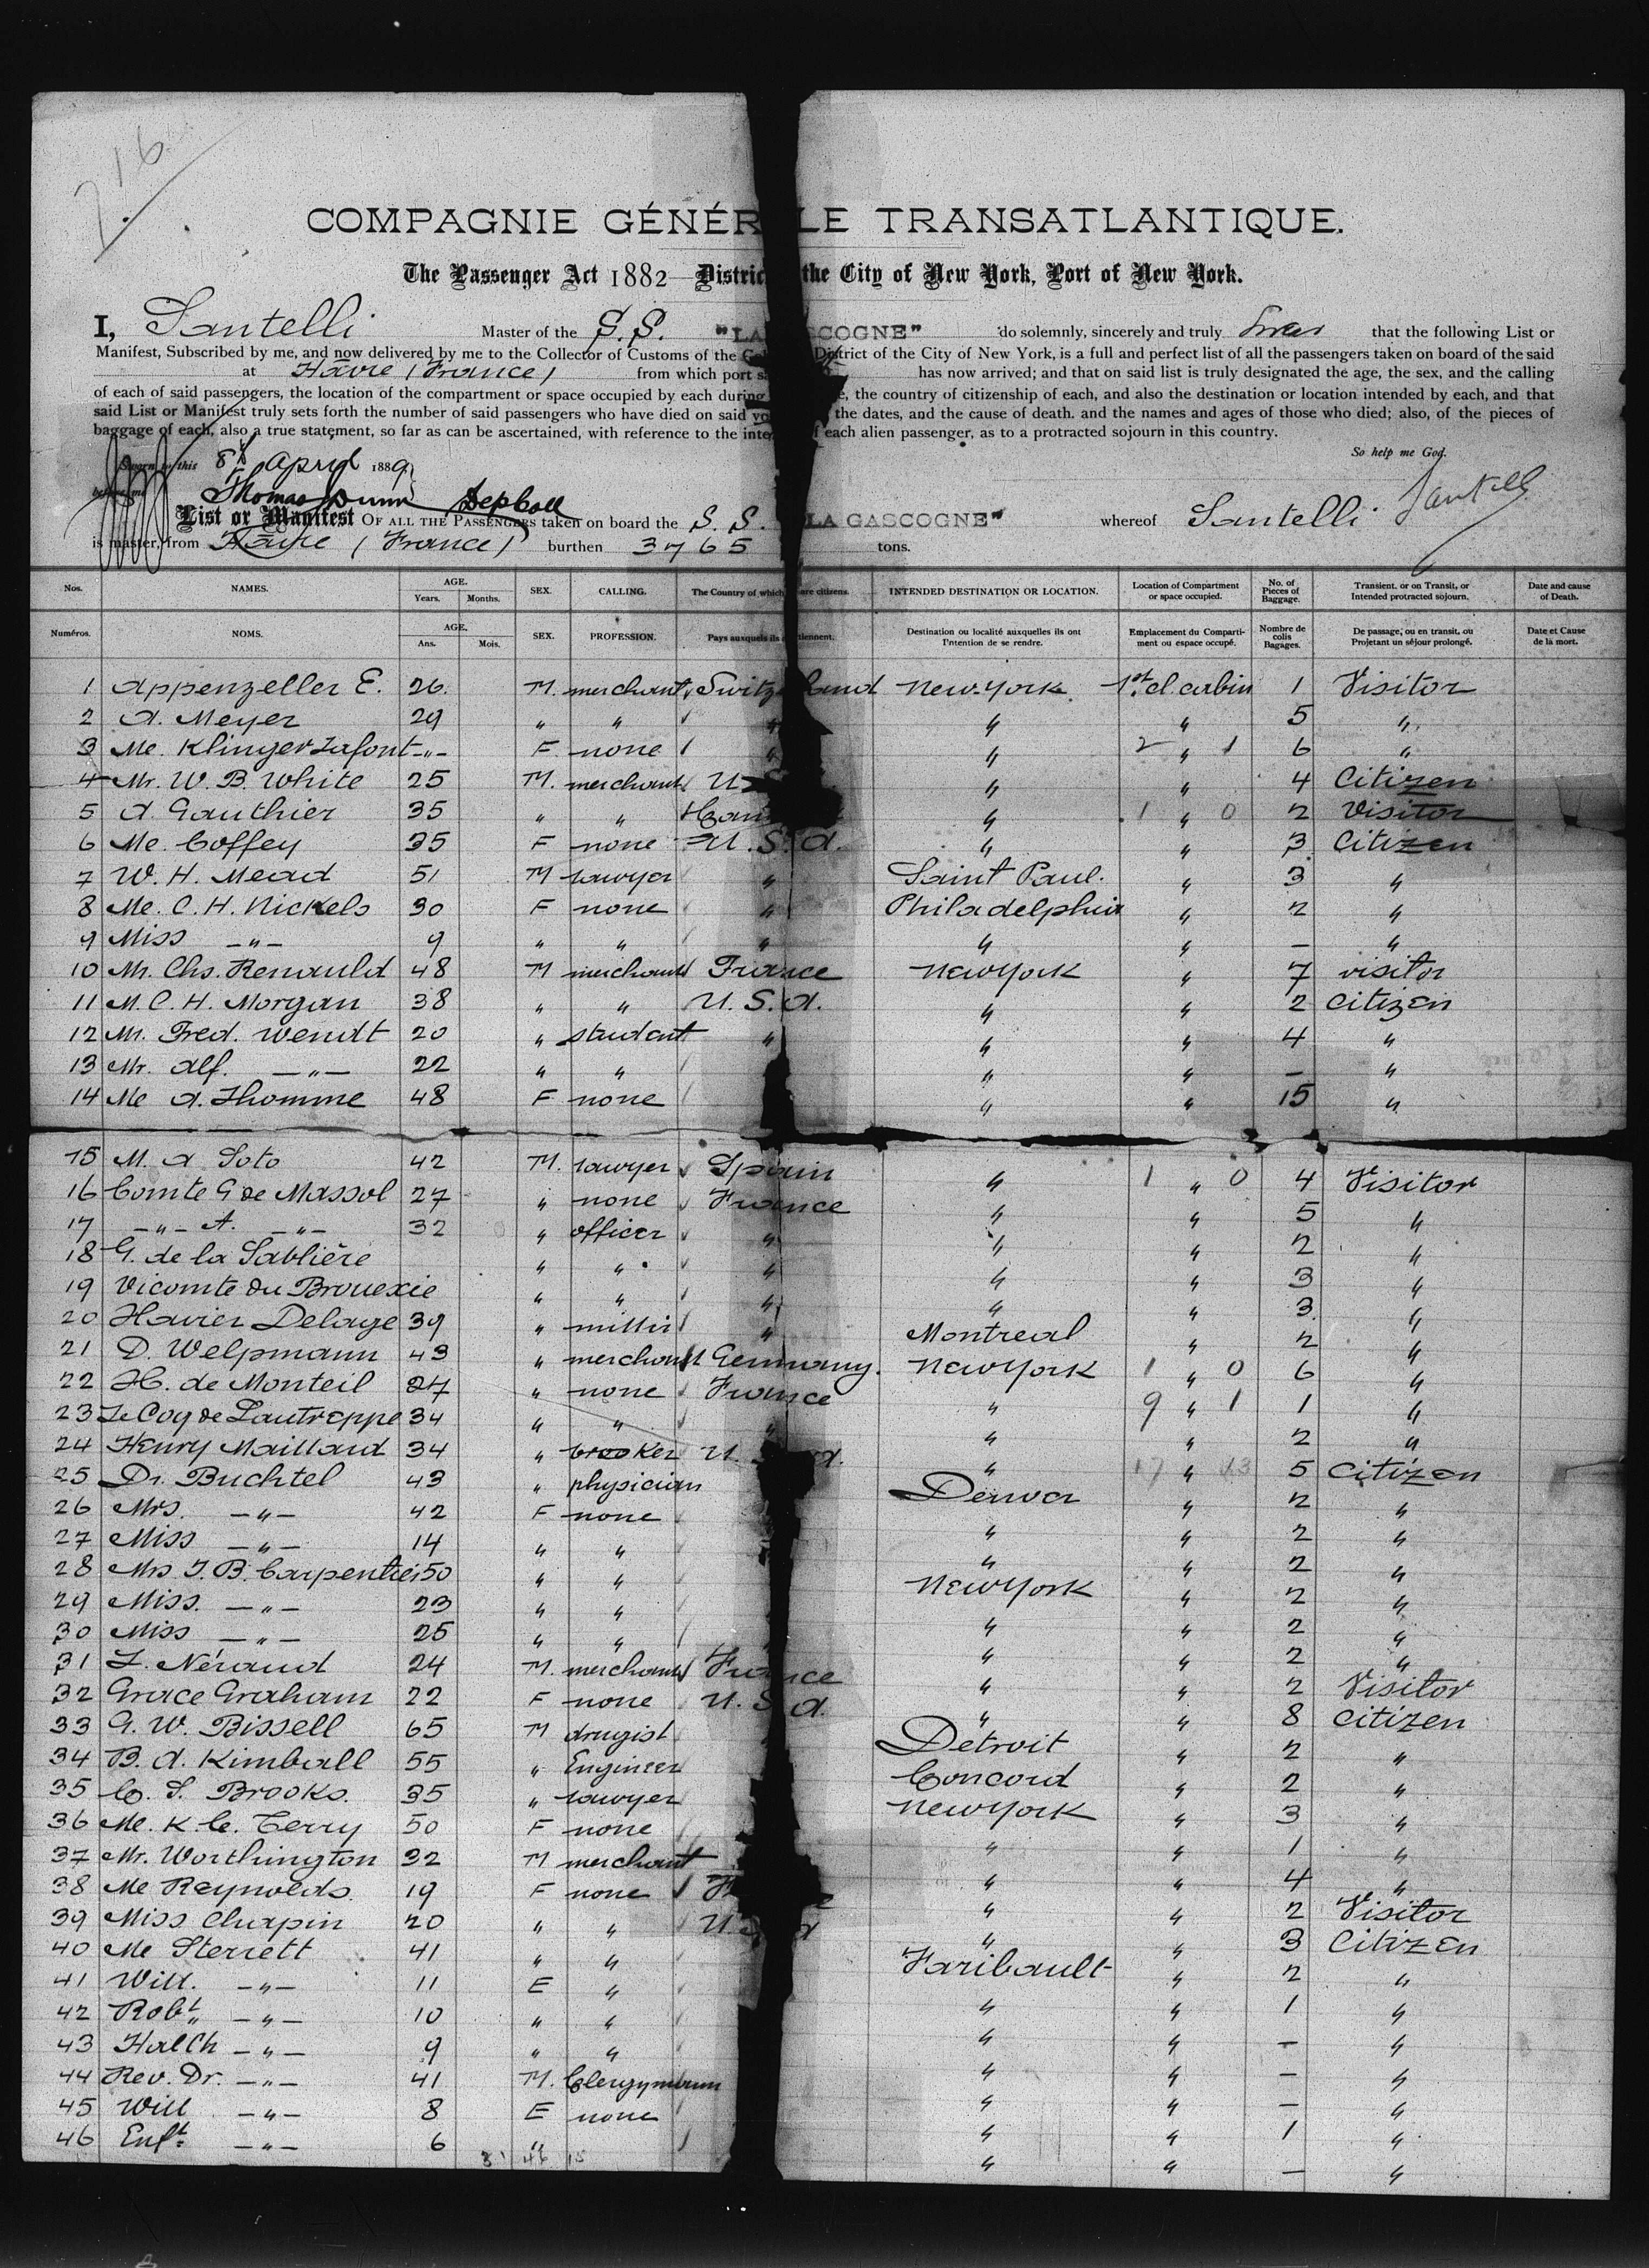 216
COMPAGNIE GÉNÉR LE TRANSATLANTIQUE.
The Passenger Act 1882 Distric the City of New York, Port of New York.
I, Santelli Master of the S.S. "LA SCOGNE" do solemnly, sincerely and truly that the following List or
Manifest, Subscribed by me, and now delivered by me to the Collector of Customs of the District of the City of New York, is a full and perfect list of all the passengers taken on board of the said
at Havre (France) from which port has now arrived; and that on said list is truly designated the age, the sex, and the calling
of each of said passengers, the location of the compartment or space occupied by each during the country of citizenship of each, and also the destination or location intended by each, and that
said List or Manifest truly sets forth the number of said passengers who have died on said the dates, and the cause of death. and the names and ages of those who died; also, of the pieces of
baggage of each, also a true statement, so far as can be ascertained, with reference to the each alien passenger, as to a protracted sojourn in this country.
So help me God.
Sworn to this 8th April 1889
before me Thomas Dunn Dep Coll
List or Manifest OF ALL THE PASSENGERS taken on board the S.S. LA GASCOGNE" whereof Santelli Santelli
is master, from Havre (France) burthen 3765 tons.
Nos. NAMES. AGE. Years. Months. SEX. CALLING. The Country of which are citizens. INTENDED DESTINATION OR LOCATION. Location of Compartment or space occupied. No. of Pieces of Baggage. Transient, or on Transit, or Intended protracted sojourn. Date and cause of Death.
Numéros. NOMS. AGE. Ans. Mois. SEX. PROFESSION. Pays auxquels ils Destination ou localité auxquelles ils ont l'intention de se rendre. Emplacement du Compartiment ou espace occupé. Nombre de colis Bagages. De passage, ou en transit, ou Projetant un séjour prolongé. Date et Cause de la mort.
1 Appenzeller E. 26. M. merchant Switz land New-York 1st cl. cabin 1 Visitor
2 A. Meyer 29 " " " " " 5 "
3 Me. Klinger Lafont -"- F none " " 2 " 1 6 "
4 Mr. W. B. White 25 M. merchant U S " " 4 Citizen
5 A. Gauthier 35 " " " 1 " 0 2 Visitor
6 Me. Coffey 35 F none U.S.A. " " 3 Citizen
7 W. H. Mead 51 M lawyer " Saint Paul. " 3 "
8 Me. C. H. Nickels 30 F none " Philadelphia " 2 "
9 Miss -"- 9 " " " " " - "
10 Mr. Chs. Renauld 48 M merchant France New York " 7 visitor
11 M. C. H. Morgan 38 " " U.S.A. " " 2 citizen
12 Mr. Fred. Wendt 20 " student " " " 4 "
13 Mr. Alf. -"- 22 " " " " - "
14 Me A. Lhomme 48 F none " " 15 "
15 M. A Soto 42 M. lawyer Spain " 1 " 0 4 Visitor
16 Comte G de Massol 27 " none France " " 5 "
17 -"- A. -"- 32 " officer " " " 2 "
18 G. de la Sablière " " " " " 3 "
19 Vicomte du Brouexic " " " " " 3 "
20 Havier Delage 39 " " Montreal " 2 "
21 D. Welpmann 43 " merchant Germany. New York 1 " 0 6 "
22 H. de Monteil 27 " none France " 9 " 1 1 "
23 Le Coq de Lautreppe 34 " " " " " 2 "
24 Henry Maillard 34 " broker U. S A. " 17 " 5 Citizen
25 Dr. Buchtel 43 " physician Denver " 2 "
26 Mrs. -"- 42 F none " " 2 "
27 Miss -"- 14 " " " " 2 "
28 Mrs J. B. Carpentier 50 " " New York " 2 "
29 Miss. -"- 23 " " " " 2 "
30 Miss -"- 25 " " " " 2 "
31 L. Néraud 24 M. merchant France " " 2 Visitor
32 Grace Graham 22 F none U.S A. " " 8 citizen
33 G. W. Bissell 65 M drugist Detroit " 2 "
34 B. A. Kimball 55 " Engineer Concord " 2 "
35 C. S. Brooks. 35 " lawyer New York " 3 "
36 Me. K. C. Terry 50 F none " " 1 "
37 Mr. Worthington 32 M merchant " " 4 "
38 Me Reynolds. 19 F none " " 2 Visitor
39 Miss Chapin 20 " " U.S A " " 3 Citizen
40 Me Sterrett 41 " " Faribault " 2 "
41 Will. -"- 11 E " " " 1 "
42 Robt. -"- 10 " " " " - "
43 Halch -"- 9 " " " " - "
44 Rev. Dr. -"- 41 M. Clergyman " " - "
45 Will -"- 8 E none " " 1 "
46 Enft. -"- 6 " " " - "
31 46 15